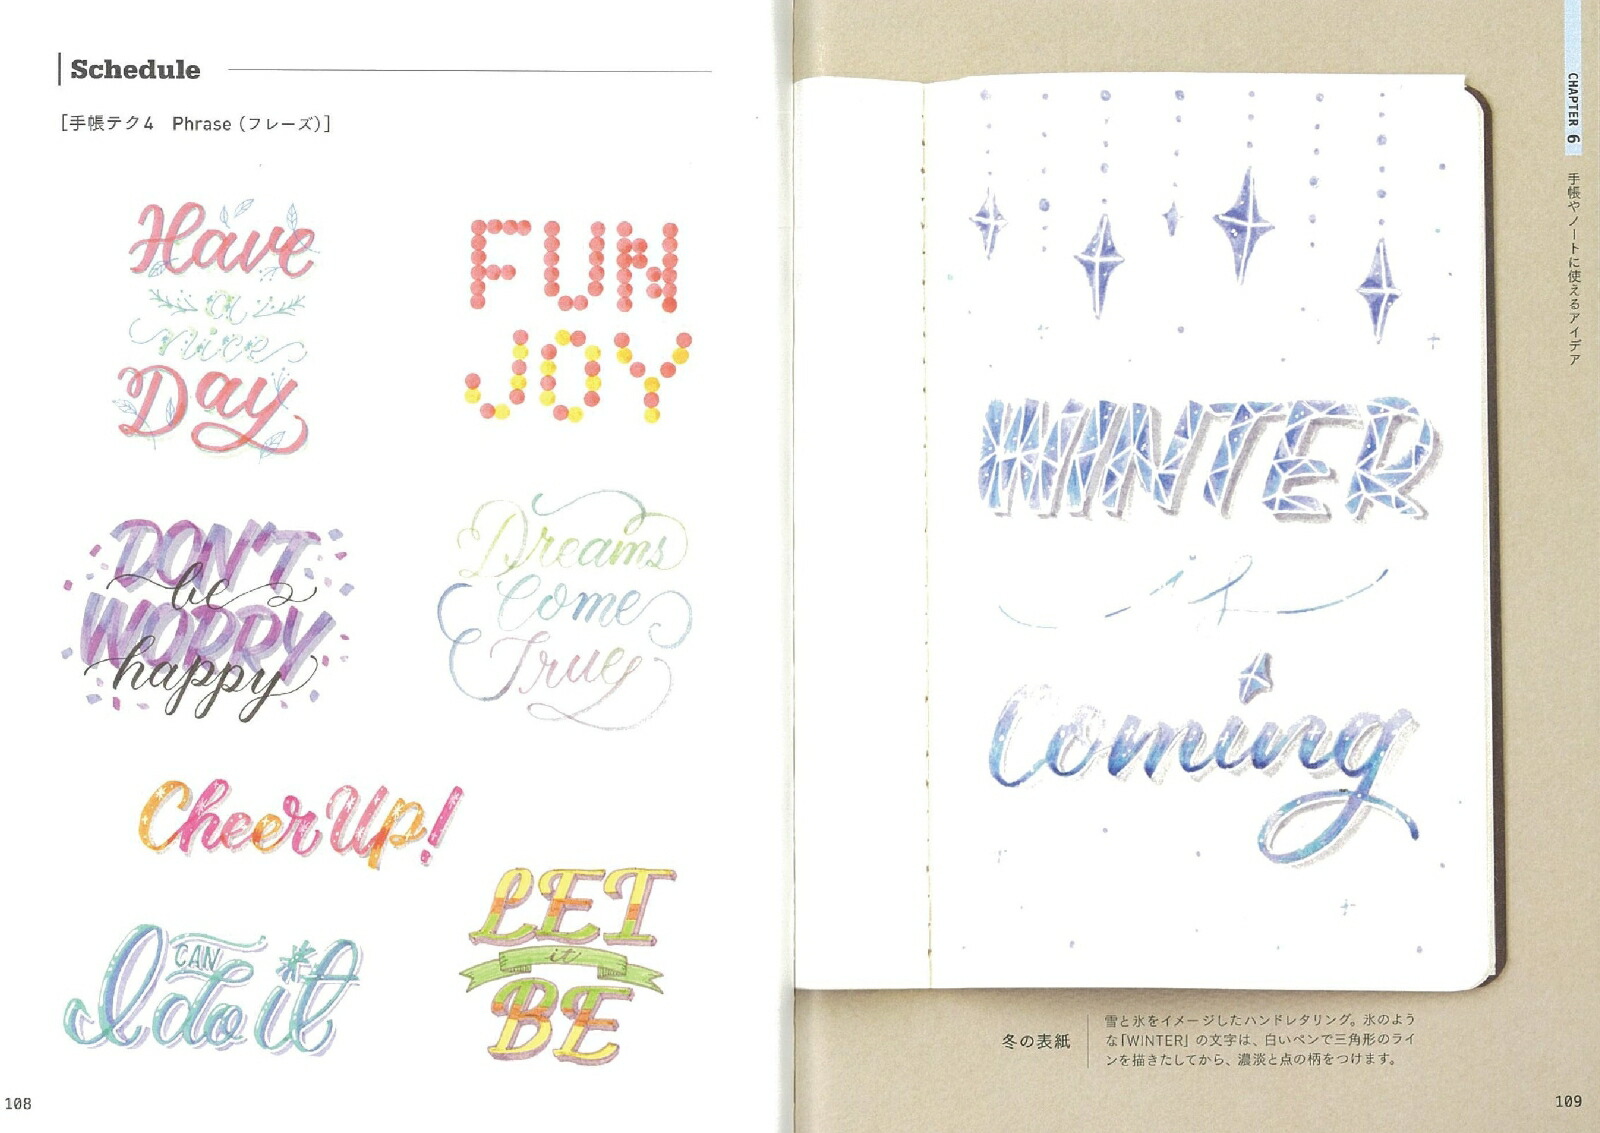 Schedule
[手帳テク4 Phrase (フレーズ)]
Have
a
nice
Day
FUN
JOY
DON'T
be
WORRY
happy
Dreams
Come
True
Cheer Up!
I CAN
do it
LET
it
BE
108
CHAPTER 6
手帳やノートに使えるアイデア
WINTER
is
Coming
冬の表紙
雪と氷をイメージしたハンドレタリング。氷のよう
な「WINTER」の文字は、白いペンで三角形のライ
ンを描きたしてから、濃淡と点の柄をつけます。
109